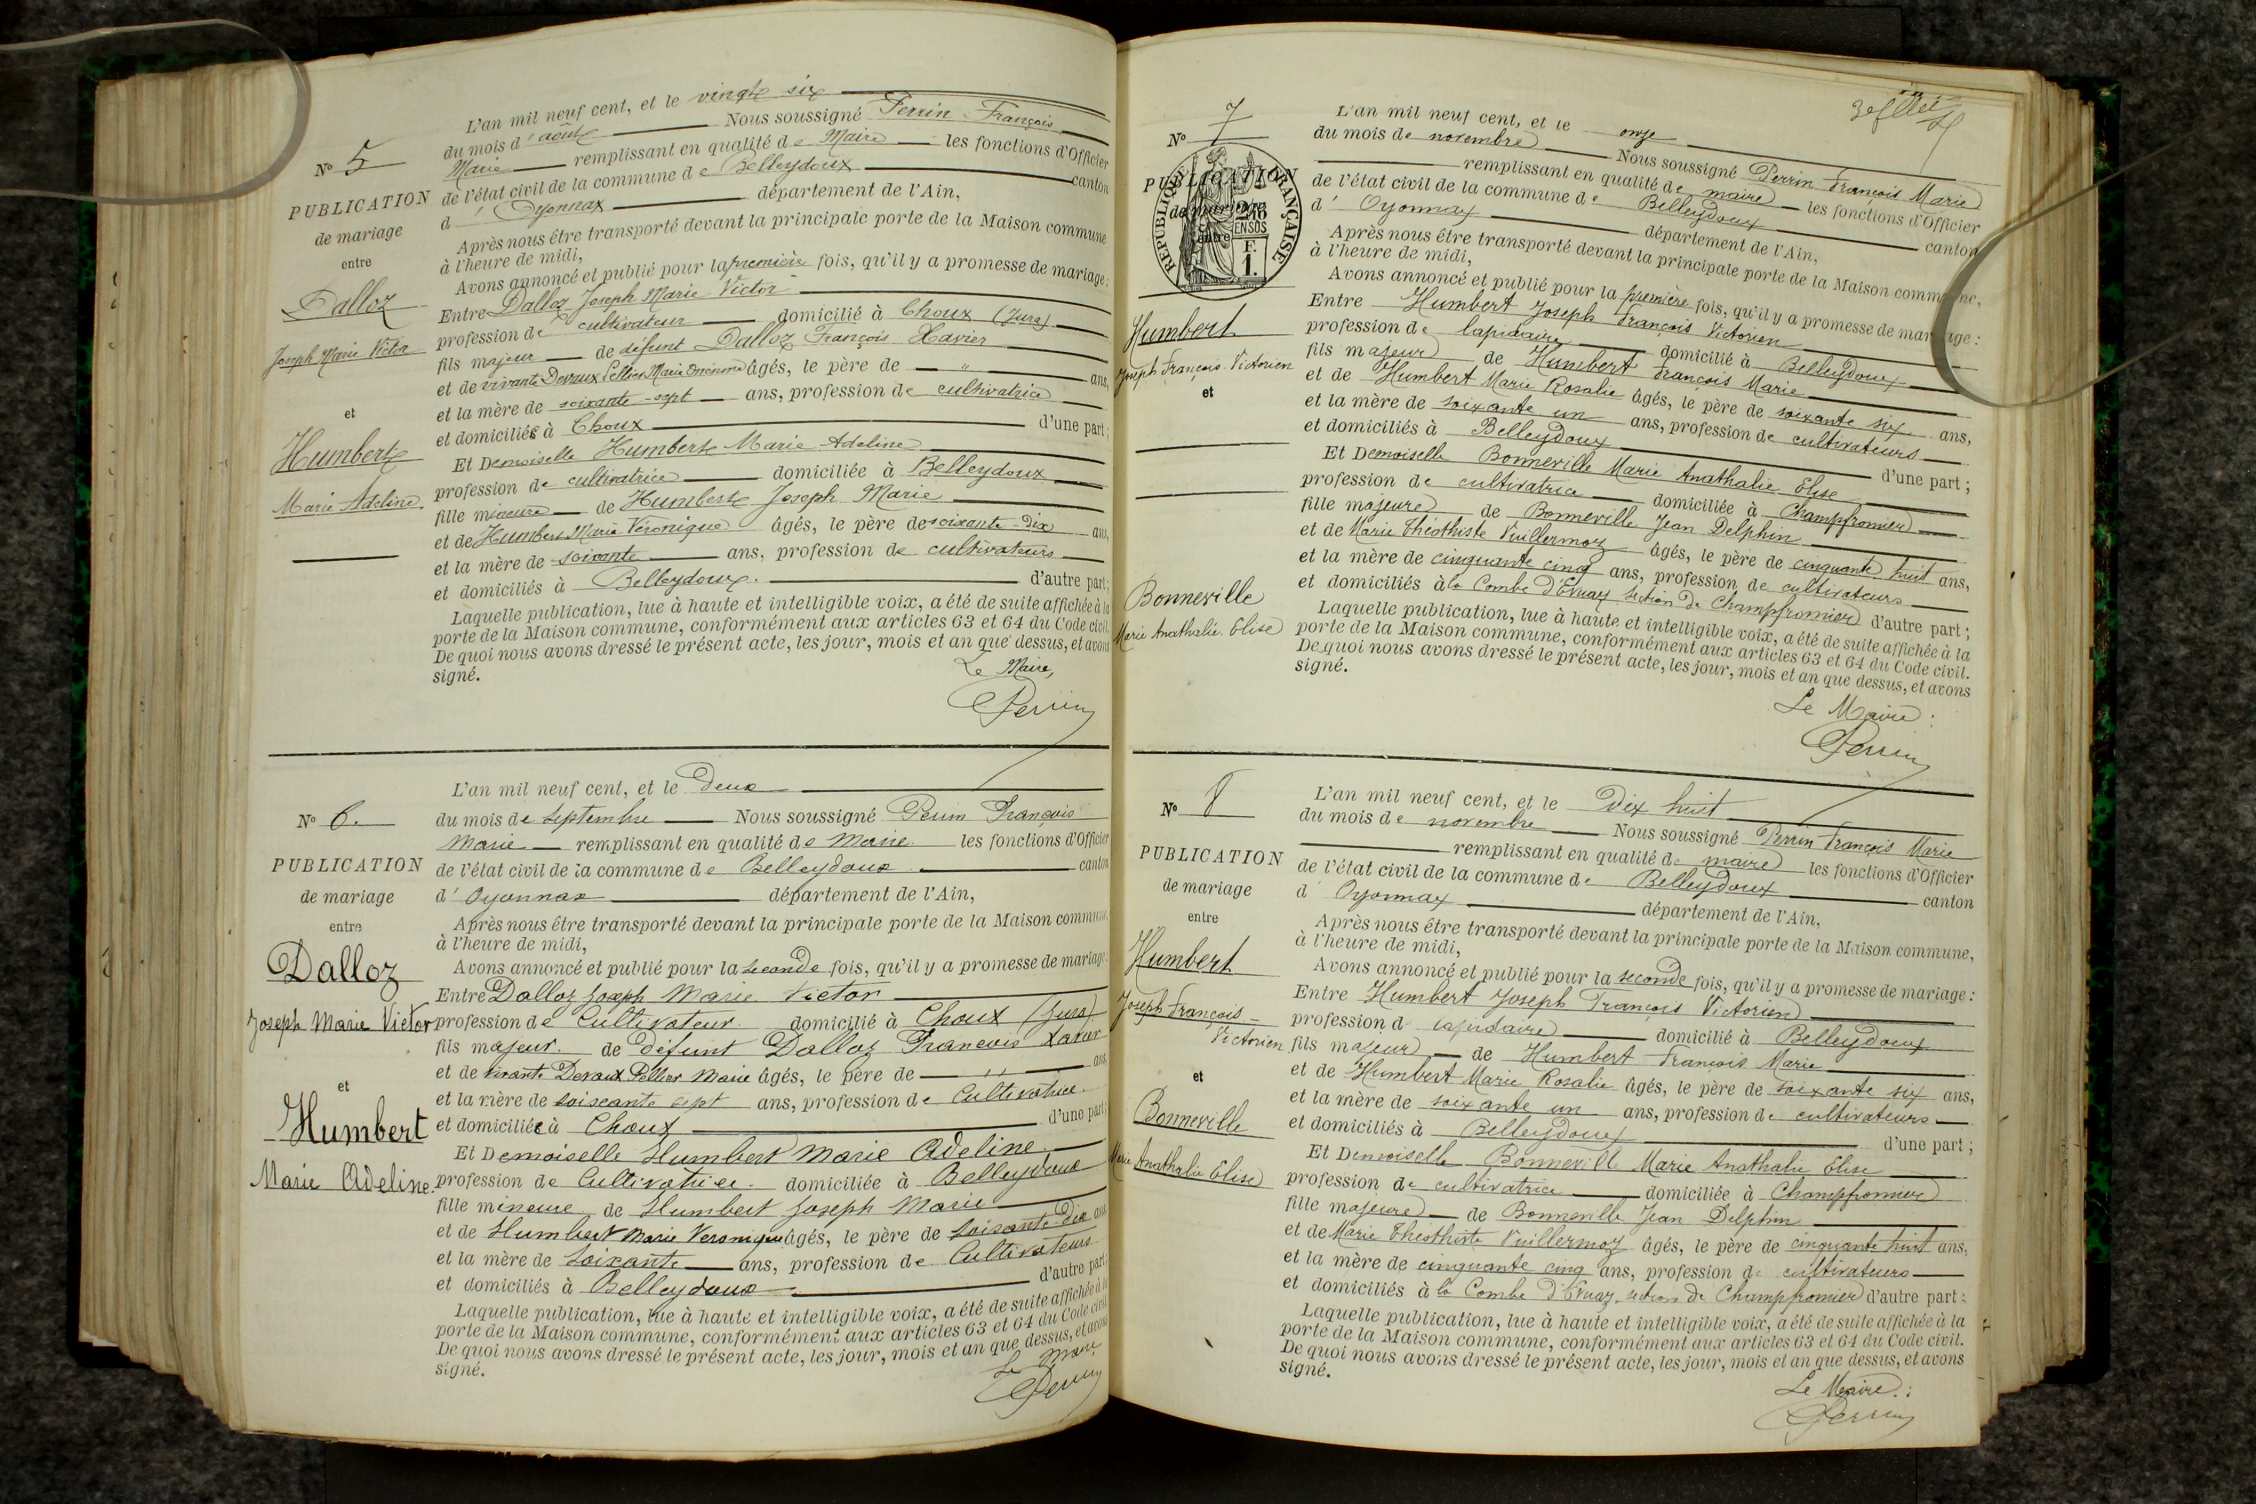 N° 5
PUBLICATION
de mariage
entre
Dalloz
Joseph Marie Victor
et
Humbert
Marie Adeline.
L'an mil neuf cent, et le vingt six
du mois d'août Nous soussigné Perrin François
Marie remplissant en qualité de Maire les fonctions d'Officier
de l'état civil de la commune de Belleydoux canton
d'Oyonnax département de l'Ain,
Après nous être transporté devant la principale porte de la Maison commune
à l'heure de midi,
Avons annoncé et publié pour la première fois, qu'il y a promesse de mariage:
Entre Dalloz Joseph Marie Victor
profession de cultivateur domicilié à Choux (Jura)
fils majeur de défunt Dalloz François Xavier
et de vivante Devaux Pellier Marie âgés, le père de " ans,
et la mère de soixante-sept ans, profession de cultivatrice
et domiciliée à Choux d'une part;
Et Demoiselle Humbert Marie Adeline
profession de cultivatrice domiciliée à Belleydoux
fille mineure de Humbert Joseph Marie
et de Humbert Marie Véronique âgés, le père de soixante-dix ans,
et la mère de soixante ans, profession de cultivateurs
et domiciliés à Belleydoux. d'autre part;
Laquelle publication, lue à haute et intelligible voix, a été de suite affichée à la
porte de la Maison commune, conformément aux articles 63 et 64 du Code civil.
De quoi nous avons dressé le présent acte, les jour, mois et an que dessus, et avons
signé.
Le Maire,
Perrin
N° 6.
PUBLICATION
de mariage
entre
Dalloz
Joseph Marie Victor
et
Humbert
Marie Adeline.
L'an mil neuf cent, et le Deux
du mois de Septembre Nous soussigné Perrin François
Marie remplissant en qualité de Maire les fonctions d'Officier
de l'état civil de la commune de Belleydoux canton
d'Oyonnax département de l'Ain,
Après nous être transporté devant la principale porte de la Maison commune,
à l'heure de midi,
Avons annoncé et publié pour la seconde fois, qu'il y a promesse de mariage:
Entre Dalloz Joseph Marie Victor
profession de Cultivateur domicilié à Choux (Jura)
fils majeur. de défunt Dalloz François Xavier
et de vivante Devaux Pellier Marie âgés, le père de " ans
et la mère de soixante sept ans, profession de Cultivatrice
et domiciliée à Choux d'une part;
Et Demoiselle Humbert Marie Adeline
profession de Cultivatrice. domiciliée à Belleydoux
fille mineure de Humbert Joseph Marie
et de Humbert Marie Veronique âgés, le père de soixante-Dix ans
et la mère de soixante ans, profession de Cultivateurs
et domiciliés à Belleydoux d'autre part;
Laquelle publication, lue à haute et intelligible voix, a été de suite affichée à la
porte de la Maison commune, conformément aux articles 63 et 64 du Code civil
De quoi nous avons dressé le présent acte, les jour, mois et an que dessus, et avons
signé.
Le Maire
Perrin
N° 7
PUBLICATION
de mariage
entre
RÉPUBLIQUE FRANÇAISE
EN SUS
F.
1.
Humbert
Joseph François Victorien
et
Bonneville
Marie Anathalie Elise
L'an mil neuf cent, et le onze
du mois de novembre Nous soussigné Perrin François Marie
remplissant en qualité de maire les fonctions d'Officier
de l'état civil de la commune de Belleydoux canton
d'Oyonnax département de l'Ain,
Après nous être transporté devant la principale porte de la Maison commune,
à l'heure de midi,
Avons annoncé et publié pour la première fois, qu'il y a promesse de mariage:
Entre Humbert Joseph François Victorien
profession de lapidaire domicilié à Belleydoux
fils majeur de Humbert François Marie
et de Humbert Marie Rosalie âgés, le père de soixante six ans,
et la mère de soixante un ans, profession de cultivateurs
et domiciliés à Belleydoux d'une part;
Et Demoiselle Bonneville Marie Anathalie Elise
profession de cultivatrice domiciliée à Champfromier
fille majeure de Bonneville Jean Delphin
et de Marie Théothiste Vuillermoz âgés, le père de cinquante huit ans,
et la mère de cinquante cinq ans, profession de cultivateurs
et domiciliés à la Combe d'Evuaz section de Champfromier d'autre part;
Laquelle publication, lue à haute et intelligible voix, a été de suite affichée à la
porte de la Maison commune, conformément aux articles 63 et 64 du Code civil.
De quoi nous avons dressé le présent acte, les jour, mois et an que dessus, et avons
signé.
Le Maire:
Perrin
N° 8
PUBLICATION
de mariage
entre
Humbert
Joseph François-
Victorien
et
Bonneville
Marie Anathalie Elise
L'an mil neuf cent, et le Dix huit
du mois de novembre Nous soussigné Perrin François Marie
remplissant en qualité de maire les fonctions d'Officier
de l'état civil de la commune de Belleydoux canton
d'Oyonnax département de l'Ain.
Après nous être transporté devant la principale porte de la Maison commune,
à l'heure de midi,
Avons annoncé et publié pour la seconde fois, qu'il y a promesse de mariage:
Entre Humbert Joseph François Victorien
profession d lapidaire domicilié à Belleydoux
fils majeur de Humbert François Marie
et de Humbert Marie Rosalie âgés, le père de soixante six ans,
et la mère de soixante un ans, profession de cultivateurs
et domiciliés à Belleydoux d'une part;
Et Demoiselle Bonneville Marie Anathalie Elise
profession de cultivatrice domiciliée à Champfromier
fille majeure de Bonneville Jean Delphin
et de Marie Théothiste Vuillermoz âgés, le père de cinquante huit ans,
et la mère de cinquante cinq ans, profession de cultivateurs
et domiciliés à la Combe d'Evuaz section de Champfromier d'autre part;
Laquelle publication, lue à haute et intelligible voix, a été de suite affichée à la
porte de la Maison commune, conformément aux articles 63 et 64 du Code civil.
De quoi nous avons dressé le présent acte, les jour, mois et an que dessus, et avons
signé.
Le Maire:
Perrin